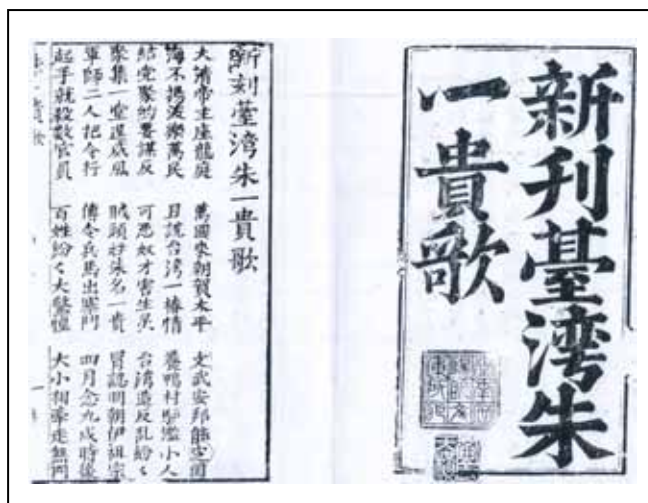 新刊臺湾朱
一貴歌
新刻臺湾朱一貴歌
大清帝主座龍庭 萬國來朝賀太平 文武安邦能定
海不揚波樂萬民 且說台湾一樁情 養鴨村 小人
結党聚約要謀反 可恶奴才害生灵 台湾造反乱纷々
聚集一堂逞威風 賊頭姓朱名一貴 冒認明朝伊祖宗
軍師二人把令行 傳令兵馬出寨門 四月念九戌時後
起手就殺數官員 百姓紛々大驚惶 大小相牽走無門
一貴歌